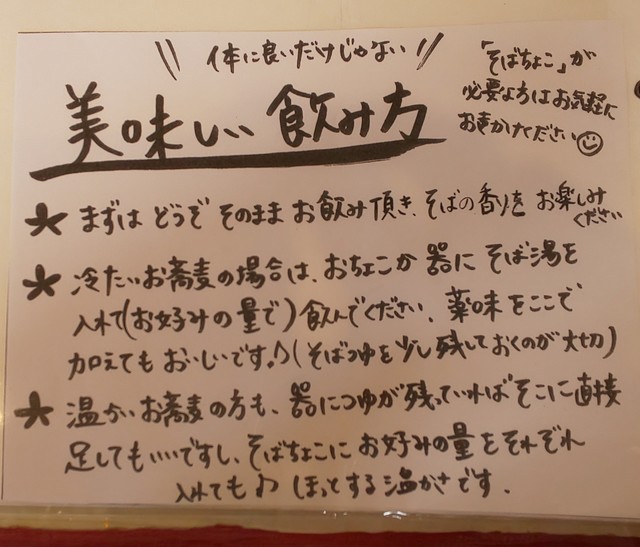 \\ 体に良いだけじゃない //
美味しい 飲み方
「そばちょこ」が
必要な方はお気軽に
お声かけください☺
★ まずは どうぞ そのまま お飲み頂き、そばの香りを お楽しみ
ください
★ 冷たいお蕎麦の場合は、おちょこか 器に そば湯を
入れて(お好みの量で)飲んでください、薬味をここで
加えても おいしいです♪(そばつゆを少し残しておくのが大切)
★ 温かいお蕎麦の方も、器につゆが残っていればそこに直接
足してもいいですし、そばちょこに お好みの量をそれぞれ
入れても♪ ほっとする温かさです.